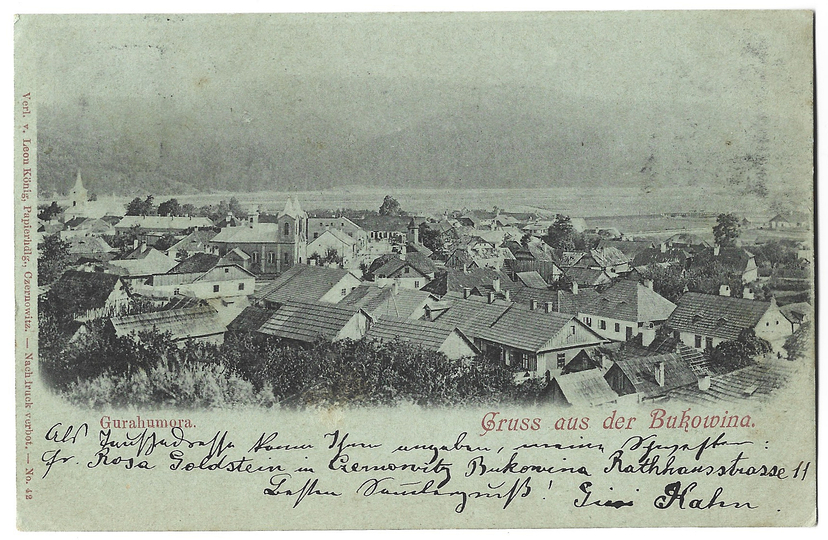 Verl. v. Leon König, Papierhdlg., Czernowitz. — Nachdruck verbot. — No. 42
Gurahumora.
Gruss aus der Bukowina.
Als Tauschadresse kann Ihnen angeben, meine
Fr. Rosa Goldstein in Czernowitz Bukowina Rathhausstrasse 11
Besten Sammlergruß! Kahn.